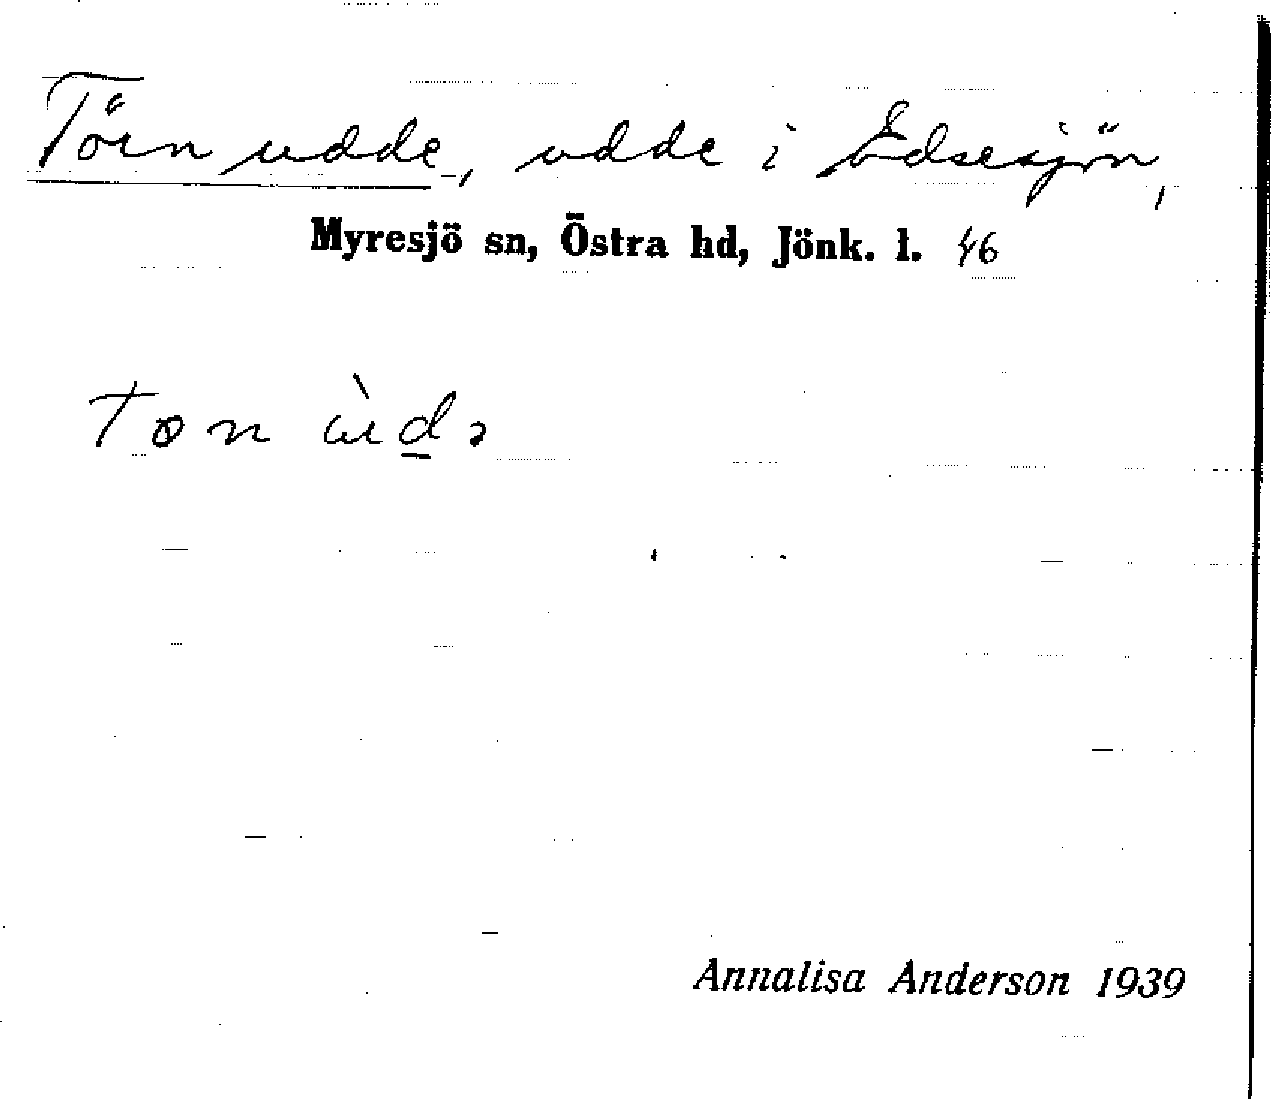 Törn udde, udde i Edsesjön,
Myresjö sn, Östra hd, Jönk. l. 46
tøn ùdə
Annalisa Anderson 1939